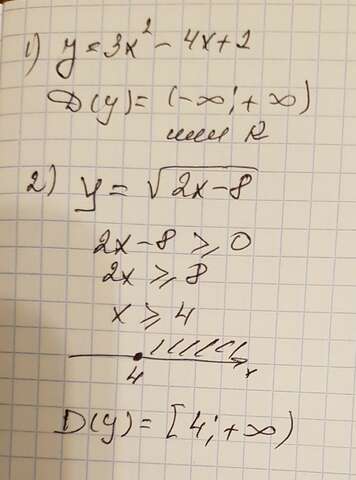 1) y = 3x² - 4x + 2
D(y) = (-∞; +∞)
или R
2) y = √(2x-8)
2x - 8 ⩾ 0
2x ⩾ 8
x ⩾ 4
4 x
D(y) = [4; +∞)